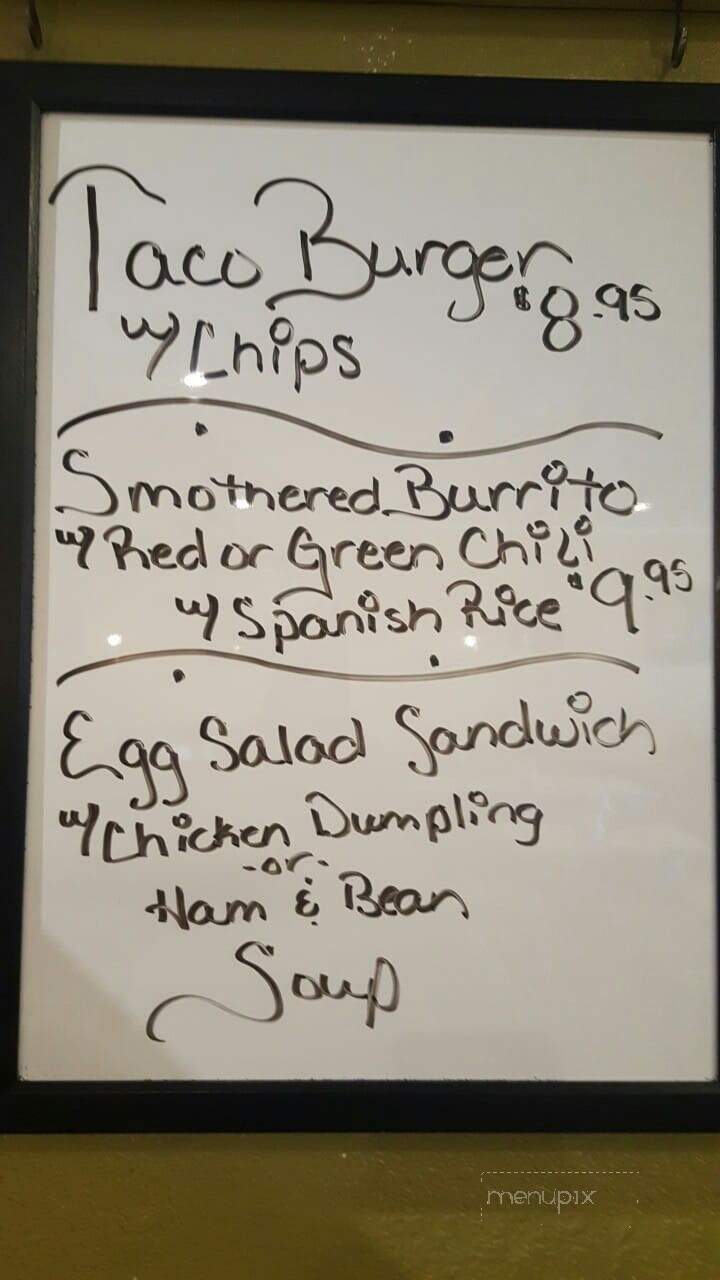 Taco Burger
$8.95
w/ Chips
Smothered Burrito
w/ Red or Green Chili
w/ Spanish Rice $9.95
Egg Salad Sandwich
w/ Chicken Dumpling
-or-
Ham & Bean
Soup
menupix